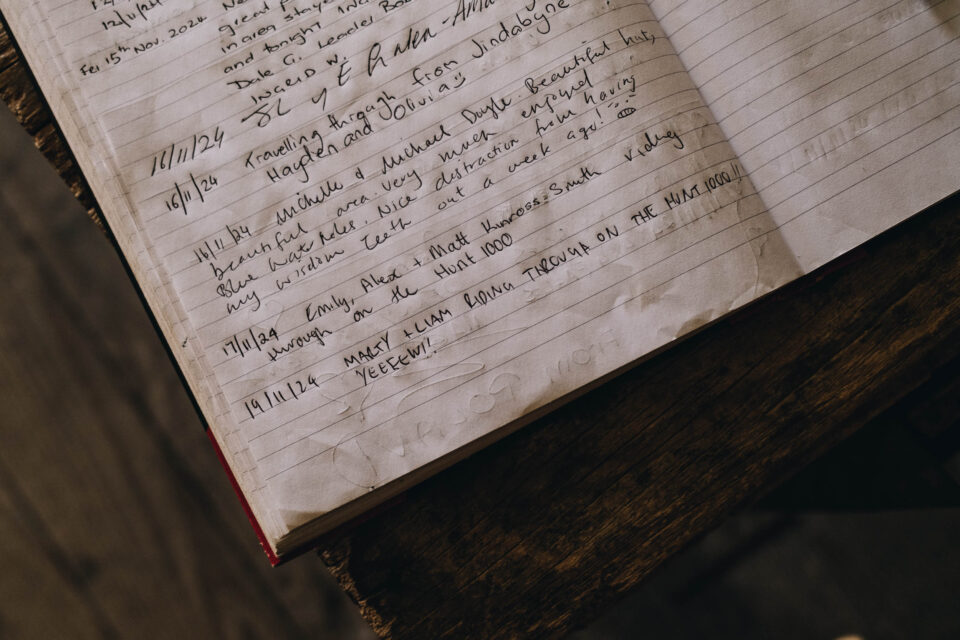 12/11/24
Fri 15th Nov. 2024
great
in area stayed
and tonight
Dale G. Leader
Ingrid W.
16/11/24
16/11/24 Travelling through from Jindabyne
Hayden and Olivia :)
16/11/24 Michelle & Michael Doyle. Beautiful hut,
beautiful area. Very much enjoyed
Blue Water Holes. Nice distraction from having
my wisdom teeth out a week ago!
17/11/24 Emily, Alex + Matt Kinross-Smith riding
through on the Hunt 1000
19/11/24 MARTY + LIAM RIDING THROUGH ON THE HUNT 1000!!
YEEEEW!!